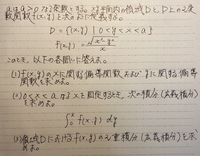 aはa>0なる定数とする。xy平面内の領域DとD上の2変
数関数f(x,y)を次のように定義する。
D = {(x,y) | 0<y<x<a}
f(x,y) = √x²-y² / x
このとき、以下の各問いに答えよ。
(1) f(x,y)のxに関する偏導関数およびyに関する偏導
関数を求めよ。
(2) 0<x<aなるxを固定するとき、次の積分(広義積分)
を求めよ。
∫₀ˣ f(x,y) dy
(3) 領域Dにおけるf(x,y)の2重積分(広義積分)を求
めよ。